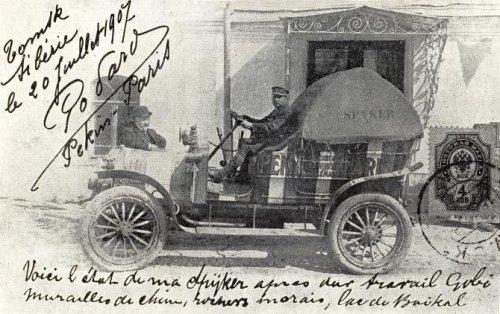 Tomsk
Sibérie
le 20 juillet 1907
Pékin-Paris
SPYKER
4
Voici l'état de ma Spijker apres dur travail Gobi
murailles de chine, rochers marais, lac de Baikal